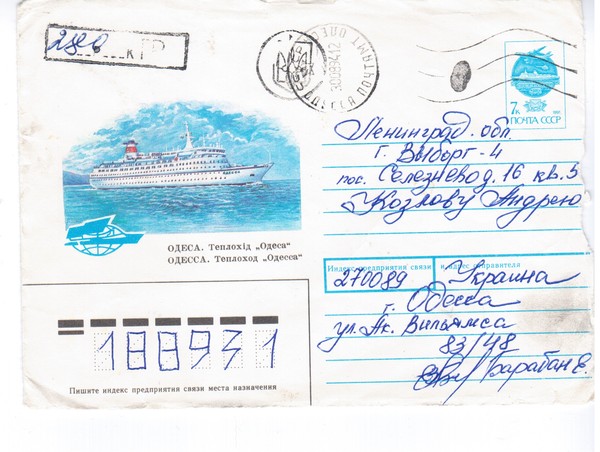 7к
ПОЧТА СССР
Ленинград. обл.
г. Выборг-4
пос. Селезнево д. 16 кв. 5
Козлову Андрею
ОДЕСА. Теплохід „Одеса“
ОДЕССА. Теплоход „Одесса“
Индекс предприятия связи и адрес отправителя
270089 Украина
г. Одесса
ул. Ак. Вильямса
83/48
Барабан Е.
188931
Пишите индекс предприятия связи места назначения